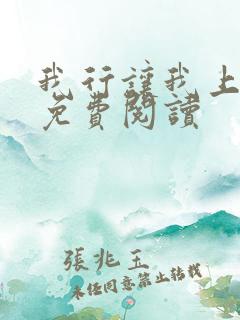 我行讓我上
免費閱讀
張兆玉
未經同意禁止轉載